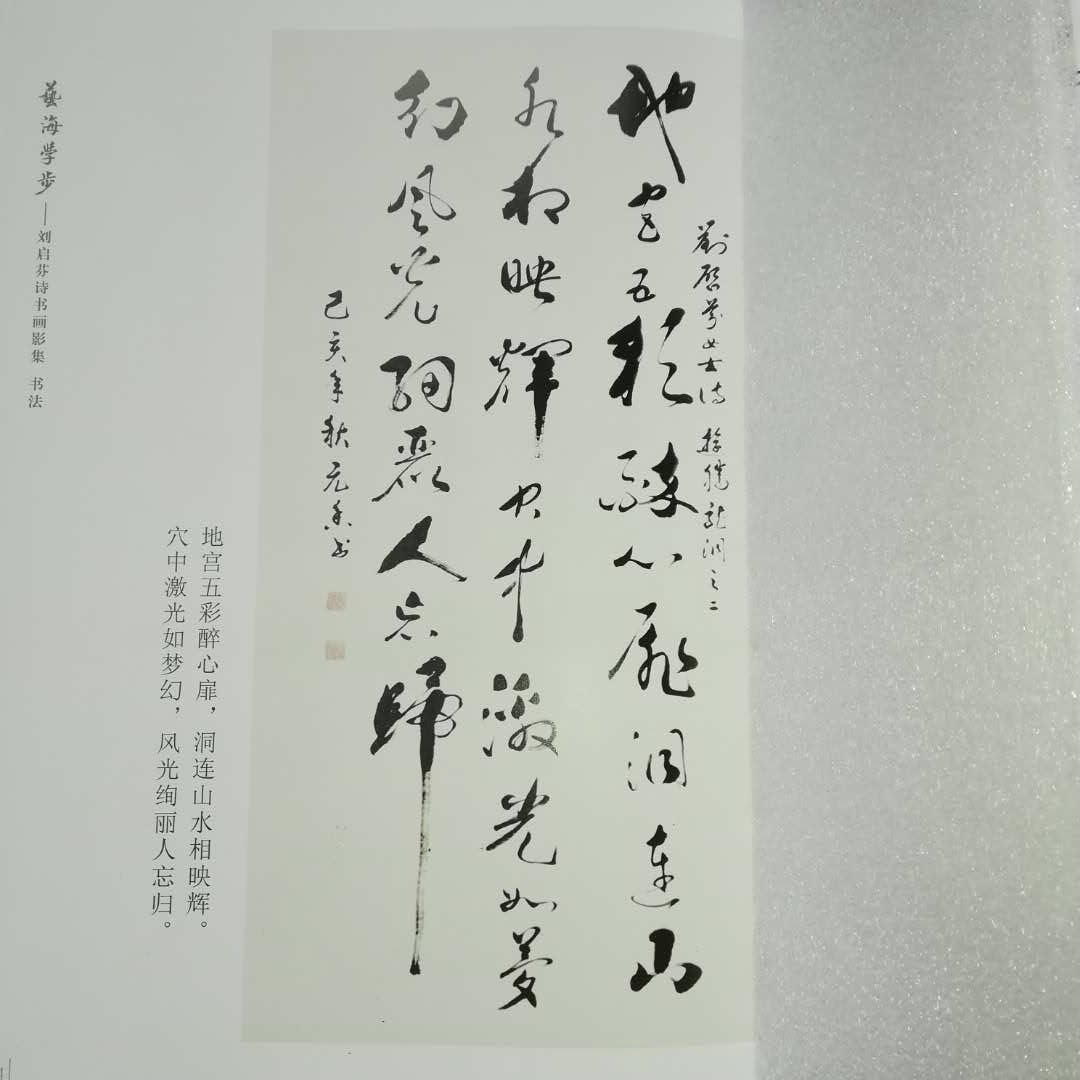 劉啟芬女士诗 游腾龙洞之二
地宫五彩醉心扉洞连山
水相映辉穴中激光如梦
幻风光绚丽人忘歸
己亥年秋元玉书
地宫五彩醉心扉，洞连山水相映辉。
穴中激光如梦幻，风光绚丽人忘归。
藝海学步——刘启芬诗书画影集 书法